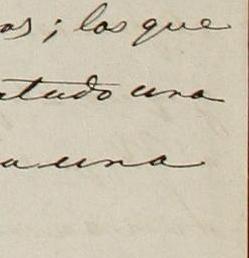 os; los que
atudo una
a una